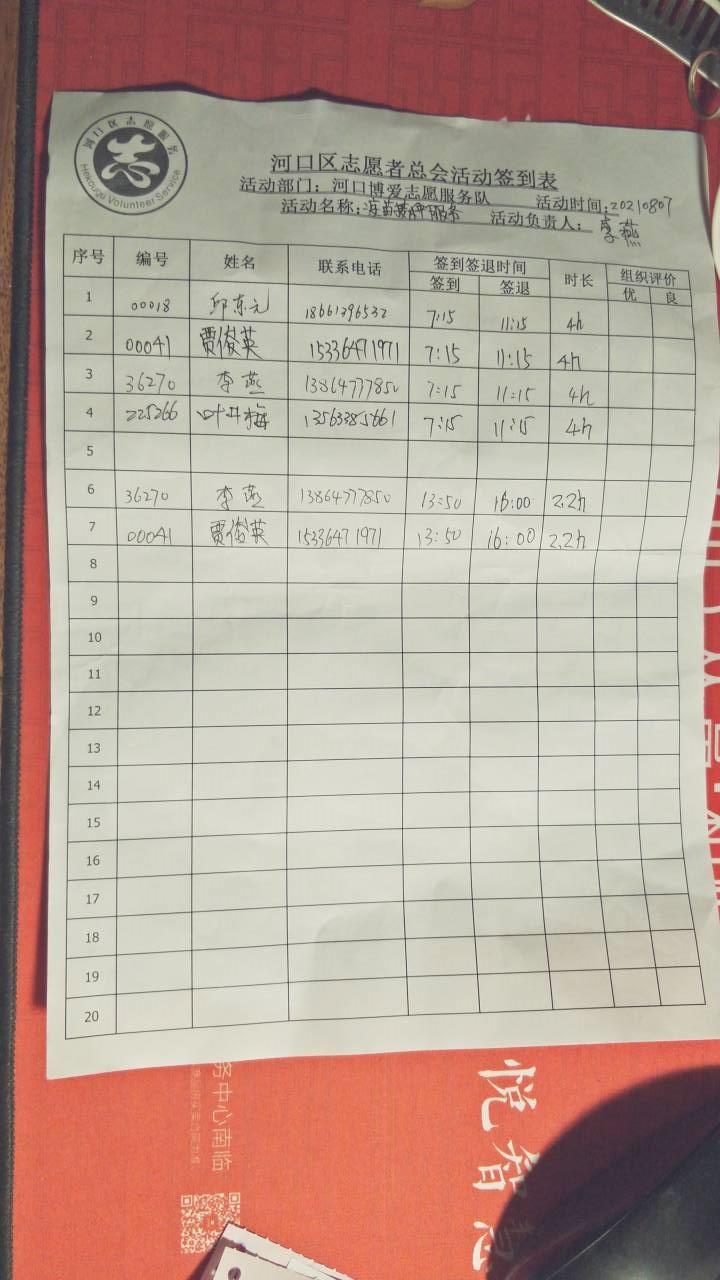 河口区志愿服务
志
Hekouqu Volunteer Service
河口区志愿者总会活动签到表
活动部门：河口博爱志愿服务队 活动时间：20210807
活动名称：疫苗接种服务 活动负责人：李燕
序号 编号 姓名 联系电话 签到签退时间 时长 组织评价
签到 签退 优 良
1 00018 邱东元 18661396532 7:15 11:15 4h
2 00041 贾俊英 15336471971 7:15 11:15 4h
3 36270 李燕 13864777850 7:15 11:15 4h
4 225266 叶井梅 13563385661 7:15 11:15 4h
5
6 36270 李燕 13864777850 13:50 16:00 2.2h
7 00041 贾俊英 15336471971 13:50 16:00 2.2h
8
9
10
11
12
13
14
15
16
17
18
19
20
务中心南临
悦智慧